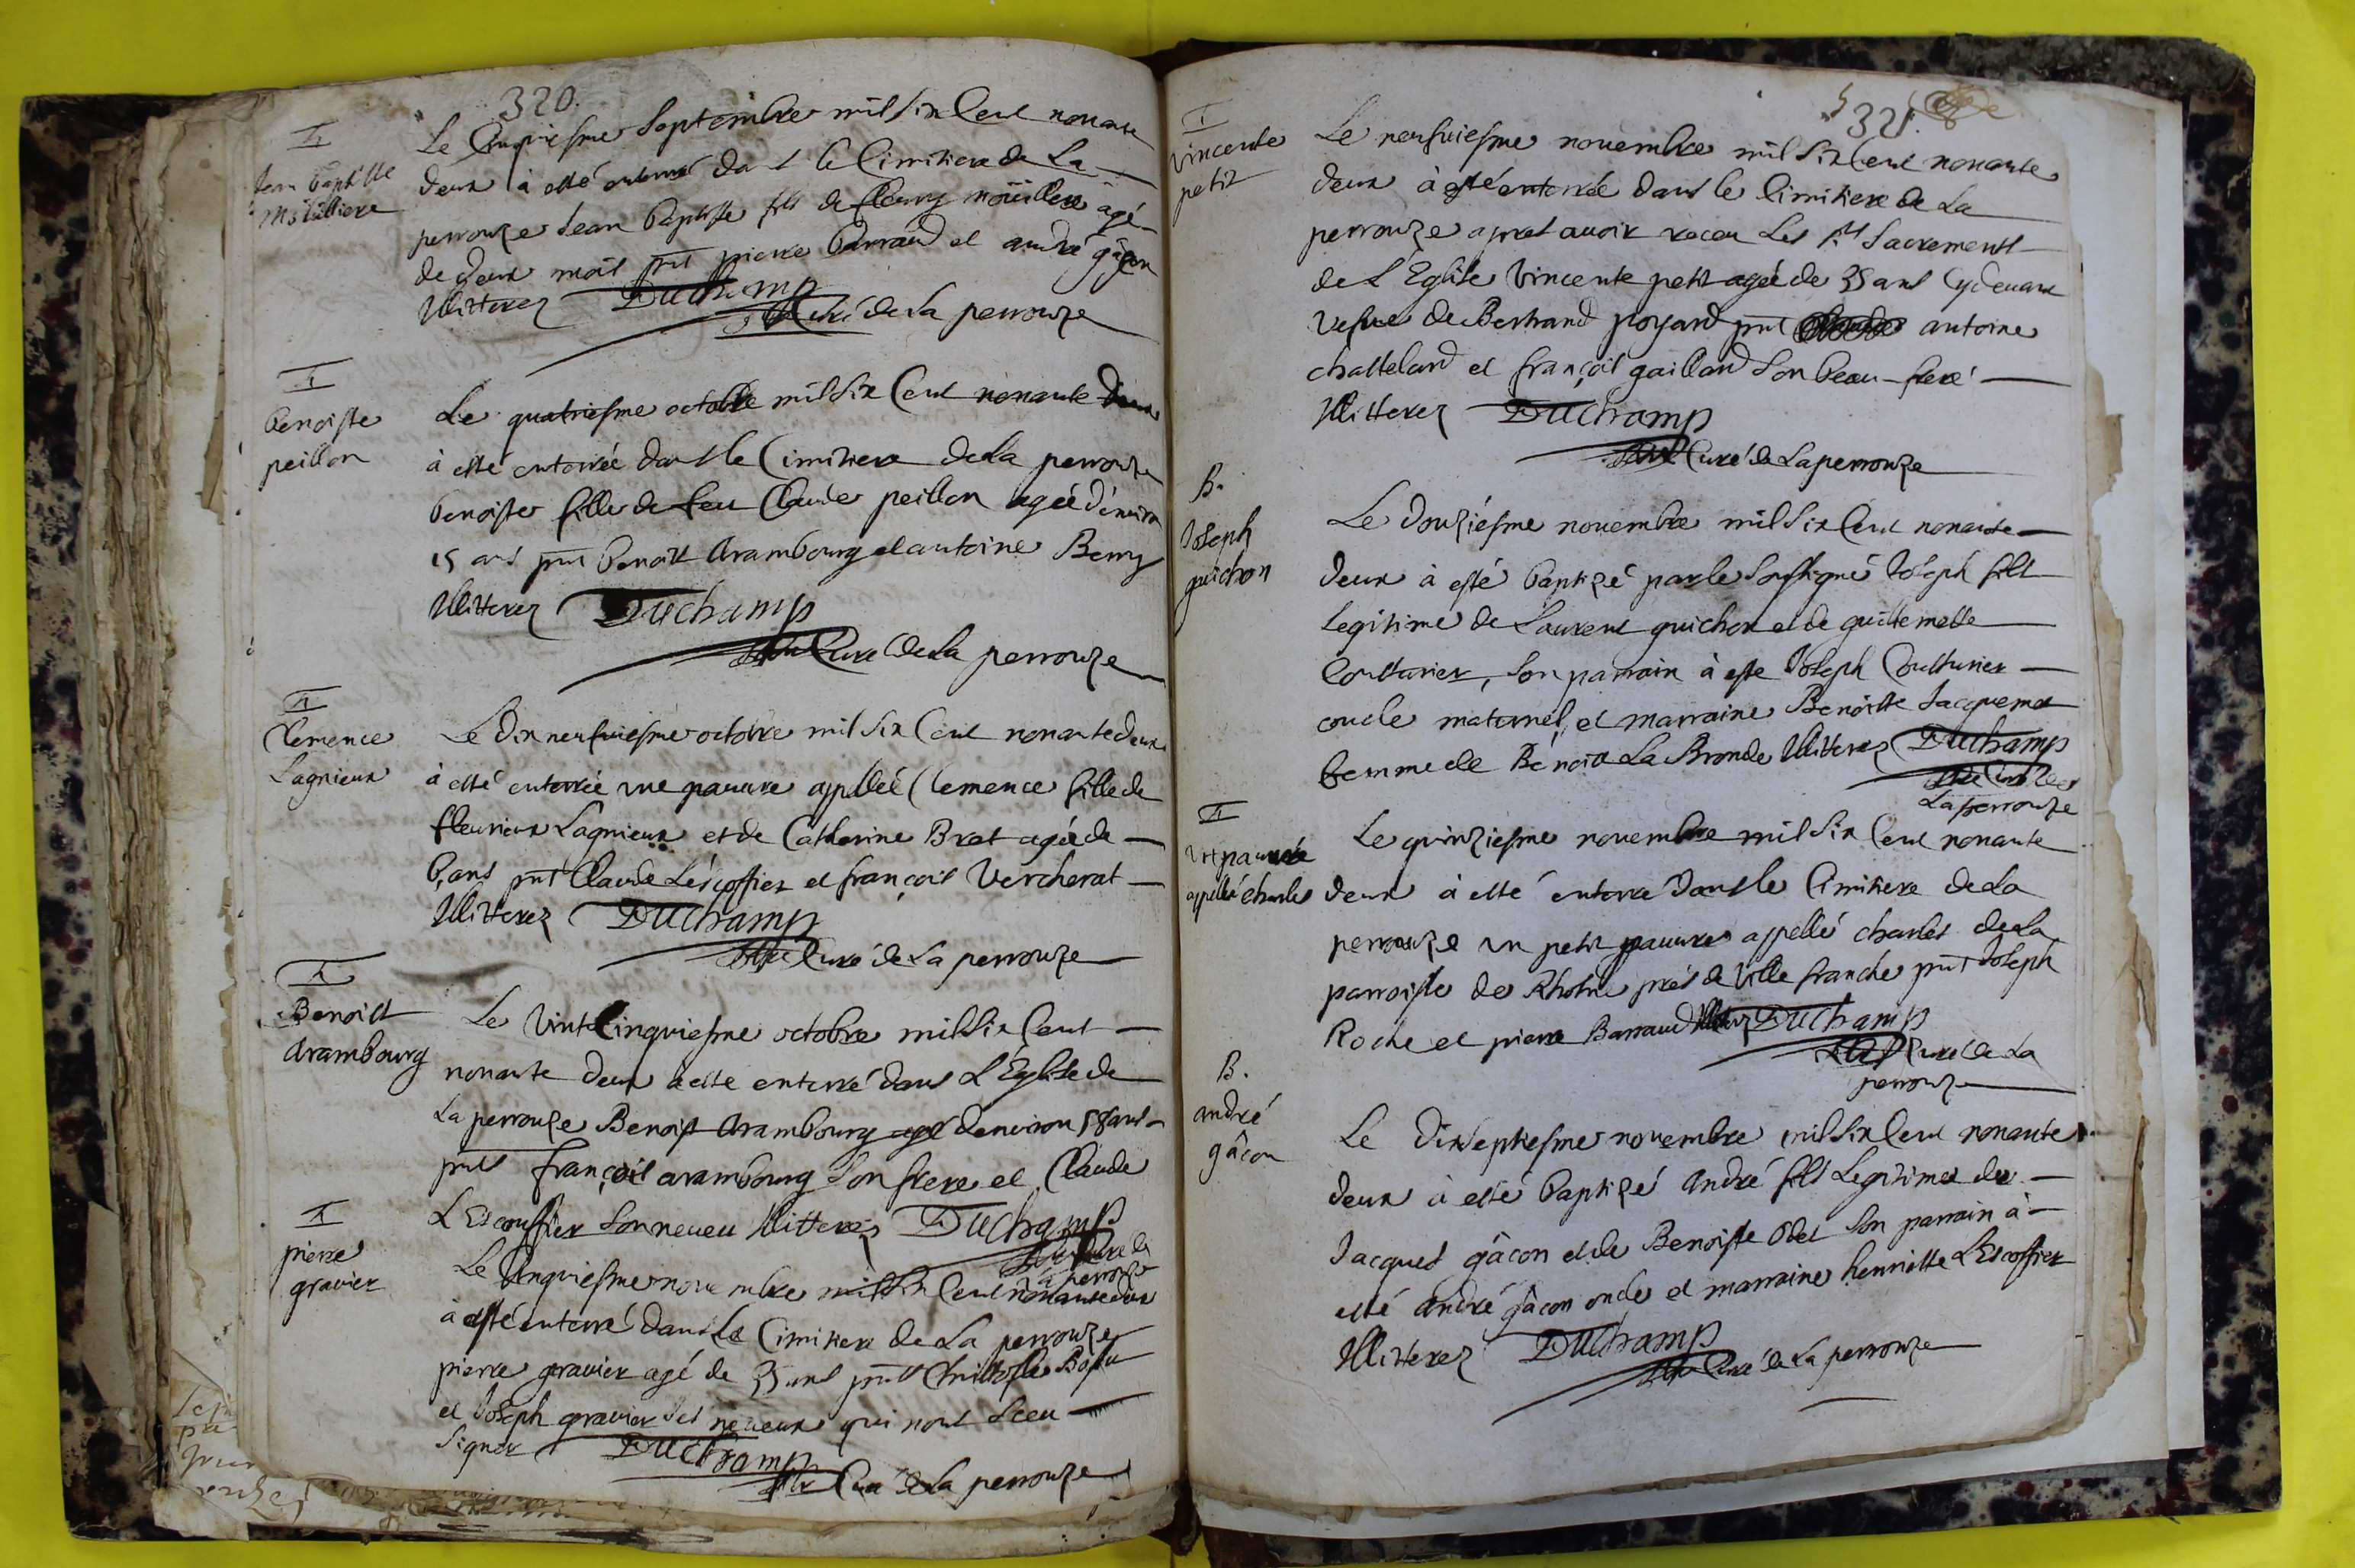 320.
Jean baptiste
Moülliere
Le Cinquiesme Septembre mil six Cent nonante
deux à esté enterré dans le Cimitiere de La
perrouze Jean baptiste fils de fleury moüillere agé
de deux mois pnt pierre barraud et andré gâcon
Illitterez Duchamp
Curé de La perrouze
benoiste
peillon
Le quatriesme octobre mil six Cent nonante deux
à esté enterrée dans le Cimitiere de La perrouze
benoiste fille de feu Claude peillon agée d'énviron
15 ans pnt benoist Arambourg et antoine Berry
Illitterez Duchamp
Curé de La perrouze
Clemence
Lagnieux
Le dix neufuiesme octobre mil six Cent nonante deux
à esté enterrée une pauure appellée Clemence fille de
fleurieux Lagnieux et de Catherine Bret agée de
6 ans pnt Claude Léscoffier et françois Vercherat
Illitterez Duchamp
Curé de La perrouze
Benoist
Arambourg
Le vint Cinquiesme octobre mil six Cent
nonante deux à esté enterré dans L'Église de
La perrouze Benoist Arambourg agé denviron 58 ans
pnts françois arambourg son frere et Claude
L'Escoffier son neueu Illitterez Duchamp
Curé de
La perrouze
pierre
gravier
Le Cinquiesme nouembre mil six Cent nonante deux
à esté enterré dans Le Cimitiere de La perrouze
pierre gravier agé de 35 ans pnts
et Joseph gravier ses neueux qui n'ont sceu
signer Duchamp
Curé de La perrouze
321.
vincente
petit
Le neufuiesme nouembre mil six Cent nonante
deux à esté enterrée dans le Cimitiere de La
perrouze apres auoir receu Les Sts Sacrements
de L'Église Vincente petit agée de 35 ans Cydeuant
vefue de Bertrand poyard pnt antoine
chattelard et françois gaillard son beau-frere
Illitterez Duchamp
Curé de La perrouze
B.
Joseph
guichon
Le douziésme nouembre mil six Cent nonante
deux à esté baptizé par le soussigné Joseph fils
Legitime de Laurent guichon et de guillemette
Coutturier, son parrain à esté Joseph Coutturier
oncle maternel, et marraine Benoiste Jacquemet
femme de Bénoit La Bronde Illitterez Duchamp
Curé de
La perrouze
un pauure
appellé charles
Le quinziesme nouembre mil six Cent nonante
deux à esté enterré dans le Cimitiere de La
perrouze un petit pauure appellé charles de La
parroisse de Rhotne prés de Ville franche pnt Joseph
Roche et pierre Barraud Illitterez Duchamp
Curé de La
perrouze
B.
andré
gâcon
Le dixseptiesme nouembre mil six Cent nonante
deux à esté baptizé André fils Legitime de
Jacques gâcon et de Benoiste Odet son parrain à
esté André gâcon oncle et marraine henriette L'Escoffier
Illitterez Duchamp
Curé de La perrouze